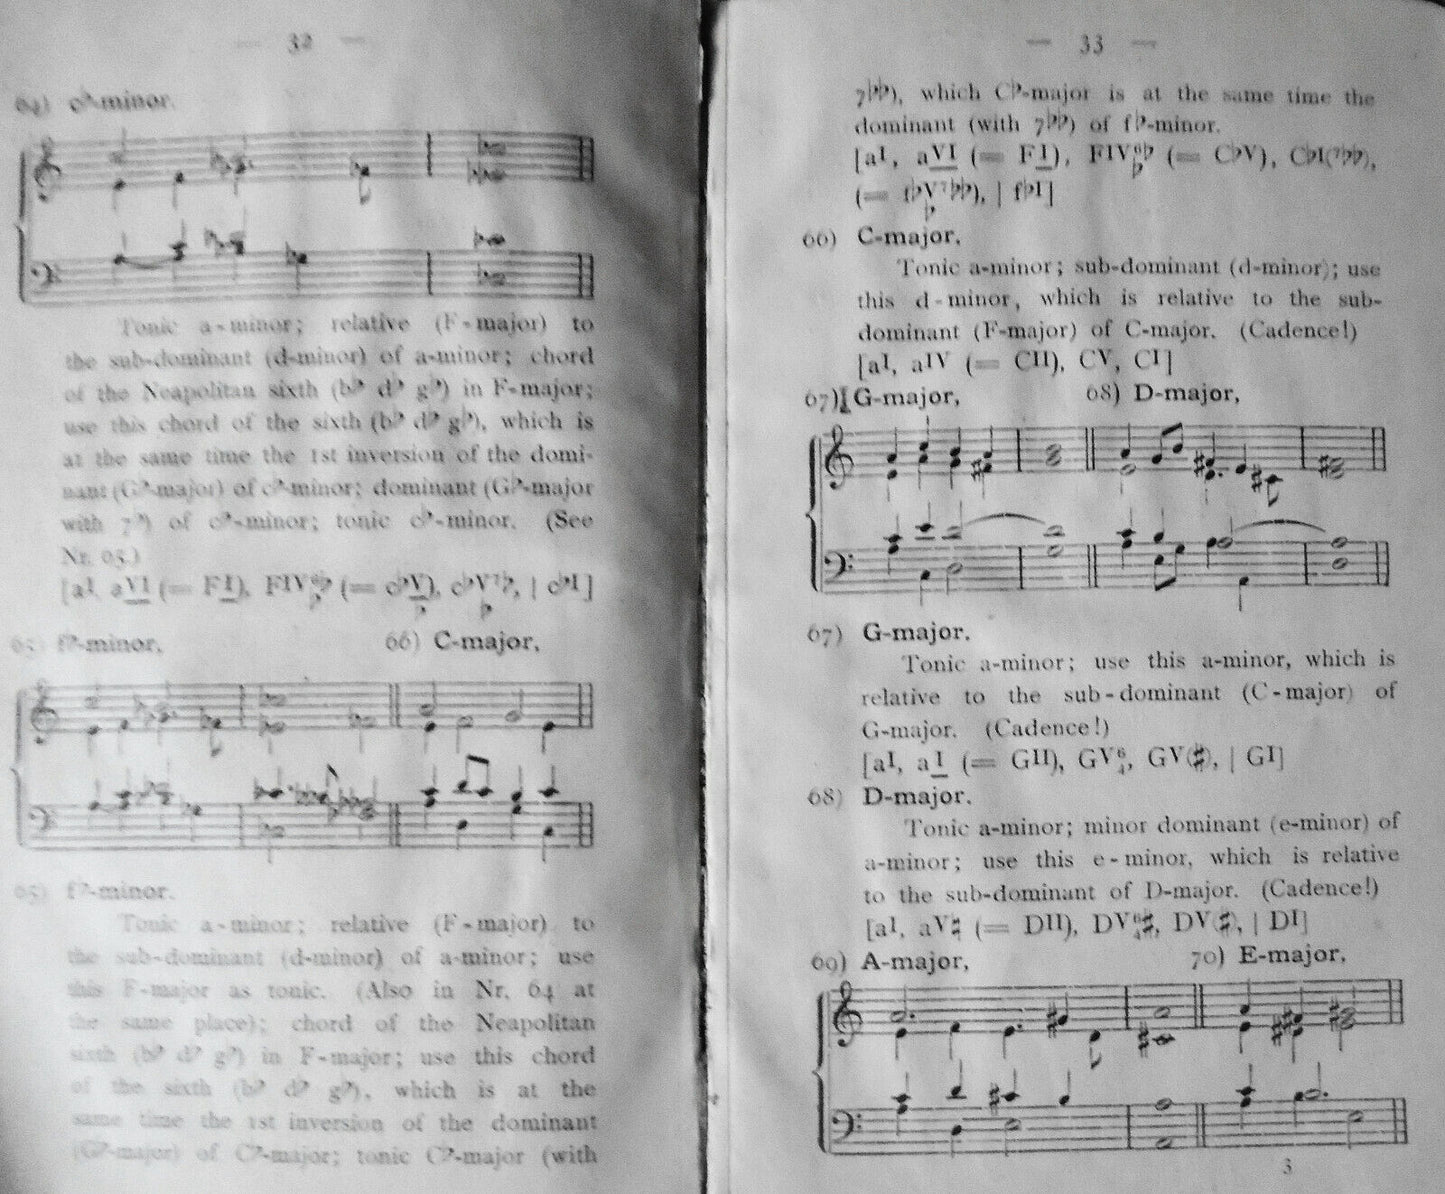 — 32 —
64) c♭-minor.
Tonic a-minor; relative (F-major) to
the sub-dominant (d-minor) of a-minor; chord
of the Neapolitan sixth (b♭ d♭ g♭) in F-major;
use this chord of the sixth (b♭ d♭ g♭), which is
at the same time the 1st inversion of the domi-
nant (G♭-major) of c♭-minor; dominant (G♭-major
with 7♭) of c♭-minor; tonic c♭-minor. (See
Nr. 65.)
[aI, aVI (= FI), FIV6♭♭ (= c♭V♭), c♭V7♭♭, | c♭I]
65) f♭-minor, 66) C-major,
65) f♭-minor.
Tonic a-minor; relative (F-major) to
the sub-dominant (d-minor) of a-minor; use
this F-major as tonic. (Also in Nr. 64 at
the same place); chord of the Neapolitan
sixth (b♭ d♭ g♭) in F-major; use this chord
of the sixth (b♭ d♭ g♭), which is at the
same time the 1st inversion of the dominant
(G♭-major) of C♭-major; tonic C♭-major (with
— 33 —
7♭♭), which C♭-major is at the same time the
dominant (with 7♭♭) of f♭-minor.
[aI, aVI (= FI), FIV6♭♭ (= C♭V), C♭I(7♭♭),
(= f♭V7♭♭♭), | f♭I]
66) C-major.
Tonic a-minor; sub-dominant (d-minor); use
this d-minor, which is relative to the sub-
dominant (F-major) of C-major. (Cadence!)
[aI, aIV (= CII), CV, CI]
67) G-major, 68) D-major,
67) G-major.
Tonic a-minor; use this a-minor, which is
relative to the sub-dominant (C-major) of
G-major. (Cadence!)
[aI, aI (= GII), GV64, GV(♯), | GI]
68) D-major.
Tonic a-minor; minor dominant (e-minor) of
a-minor; use this e-minor, which is relative
to the sub-dominant of D-major. (Cadence!)
[aI, aV♮ (= DII), DV64♯, DV(♯), | DI]
69) A-major, 70) E-major,
3